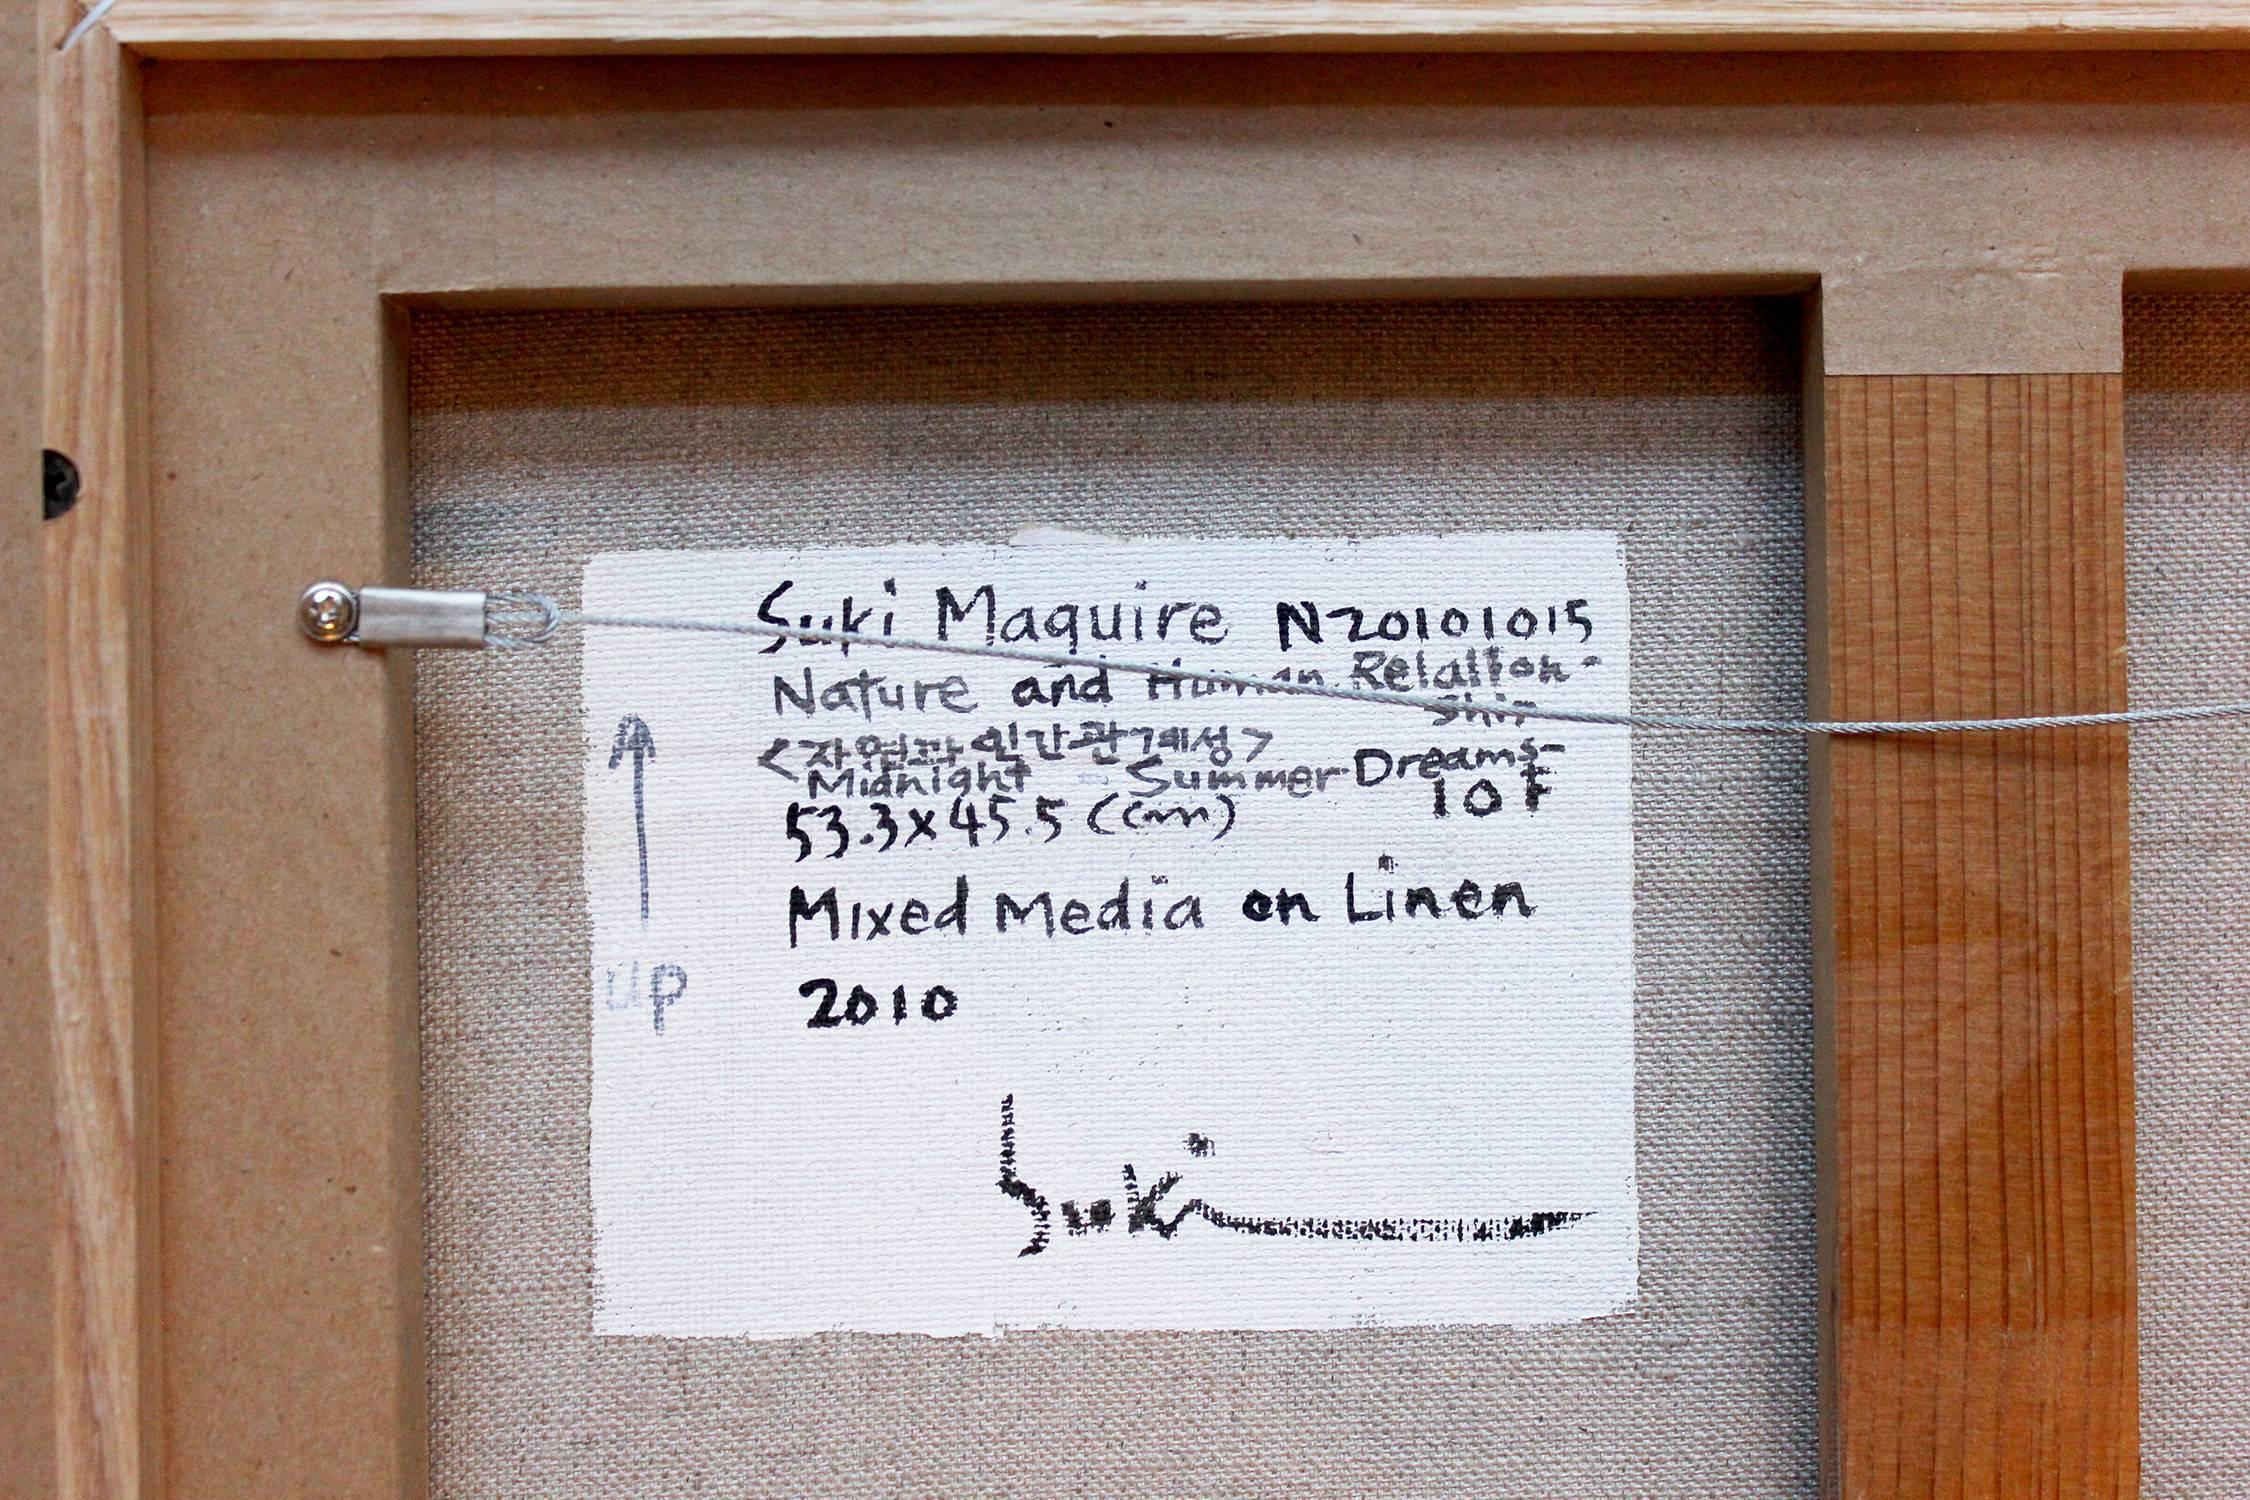 Suki Maguire N20101015
Nature and Human Relation-
Ship
<자원과 인간관계성>
Midnight Summer Dreams-
53.3x45.5 (cm) 10F
Mixed Media on Linen
2010
up
Suki